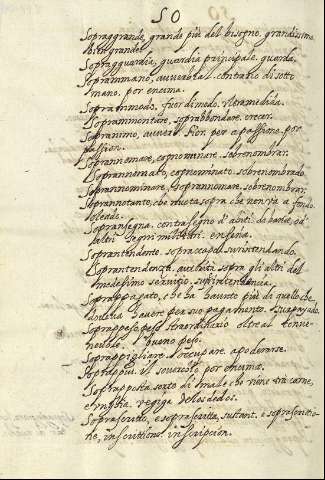 SO
Sopraggrande, grande più del bisogno, grandissimo.
bien grande.
Sopragguardia, guardia principale, guarda.
Soprammano, avverbial. contrario di sotto
mano. por encima.
Soprammodo, fior di modo. Ultramedida.
Soprammontare, soprabbondare, crecer.
Sopranimo, avverb. fior. per apassione, por
passion.
Soprannomare, cognominare, sobrenombrar.
Soprannomato, cognominato, sobrenombrado.
Soprannominare, soprannomare, sobrenombrar.
Soprannotante, che nuota sopra che non và a fondo.
Soprasegna, contrasegno d'abiti, di
altri segni militari. enseña.
Soprantendente, sopraccapo, surintendando.
Soprantendenza, autorità sopra gli altri del
medesimo servizio, surintendencia.
Soprappagato, che ha havuto più di quello che
doveva havere per suo pagamento.
Soprappeso peso straordinario oltre al conve-
nevole. bueno peso.
Soprappigliare, recupare, apoderarse.
Soprappiù, il soverchio por encima.
Soprapposta sorte di male che viene trà carne,
e unghia,
Soprascritto, e soprascritta, sustant. e soprascritio-
ne, inscrittione. inscripcion.